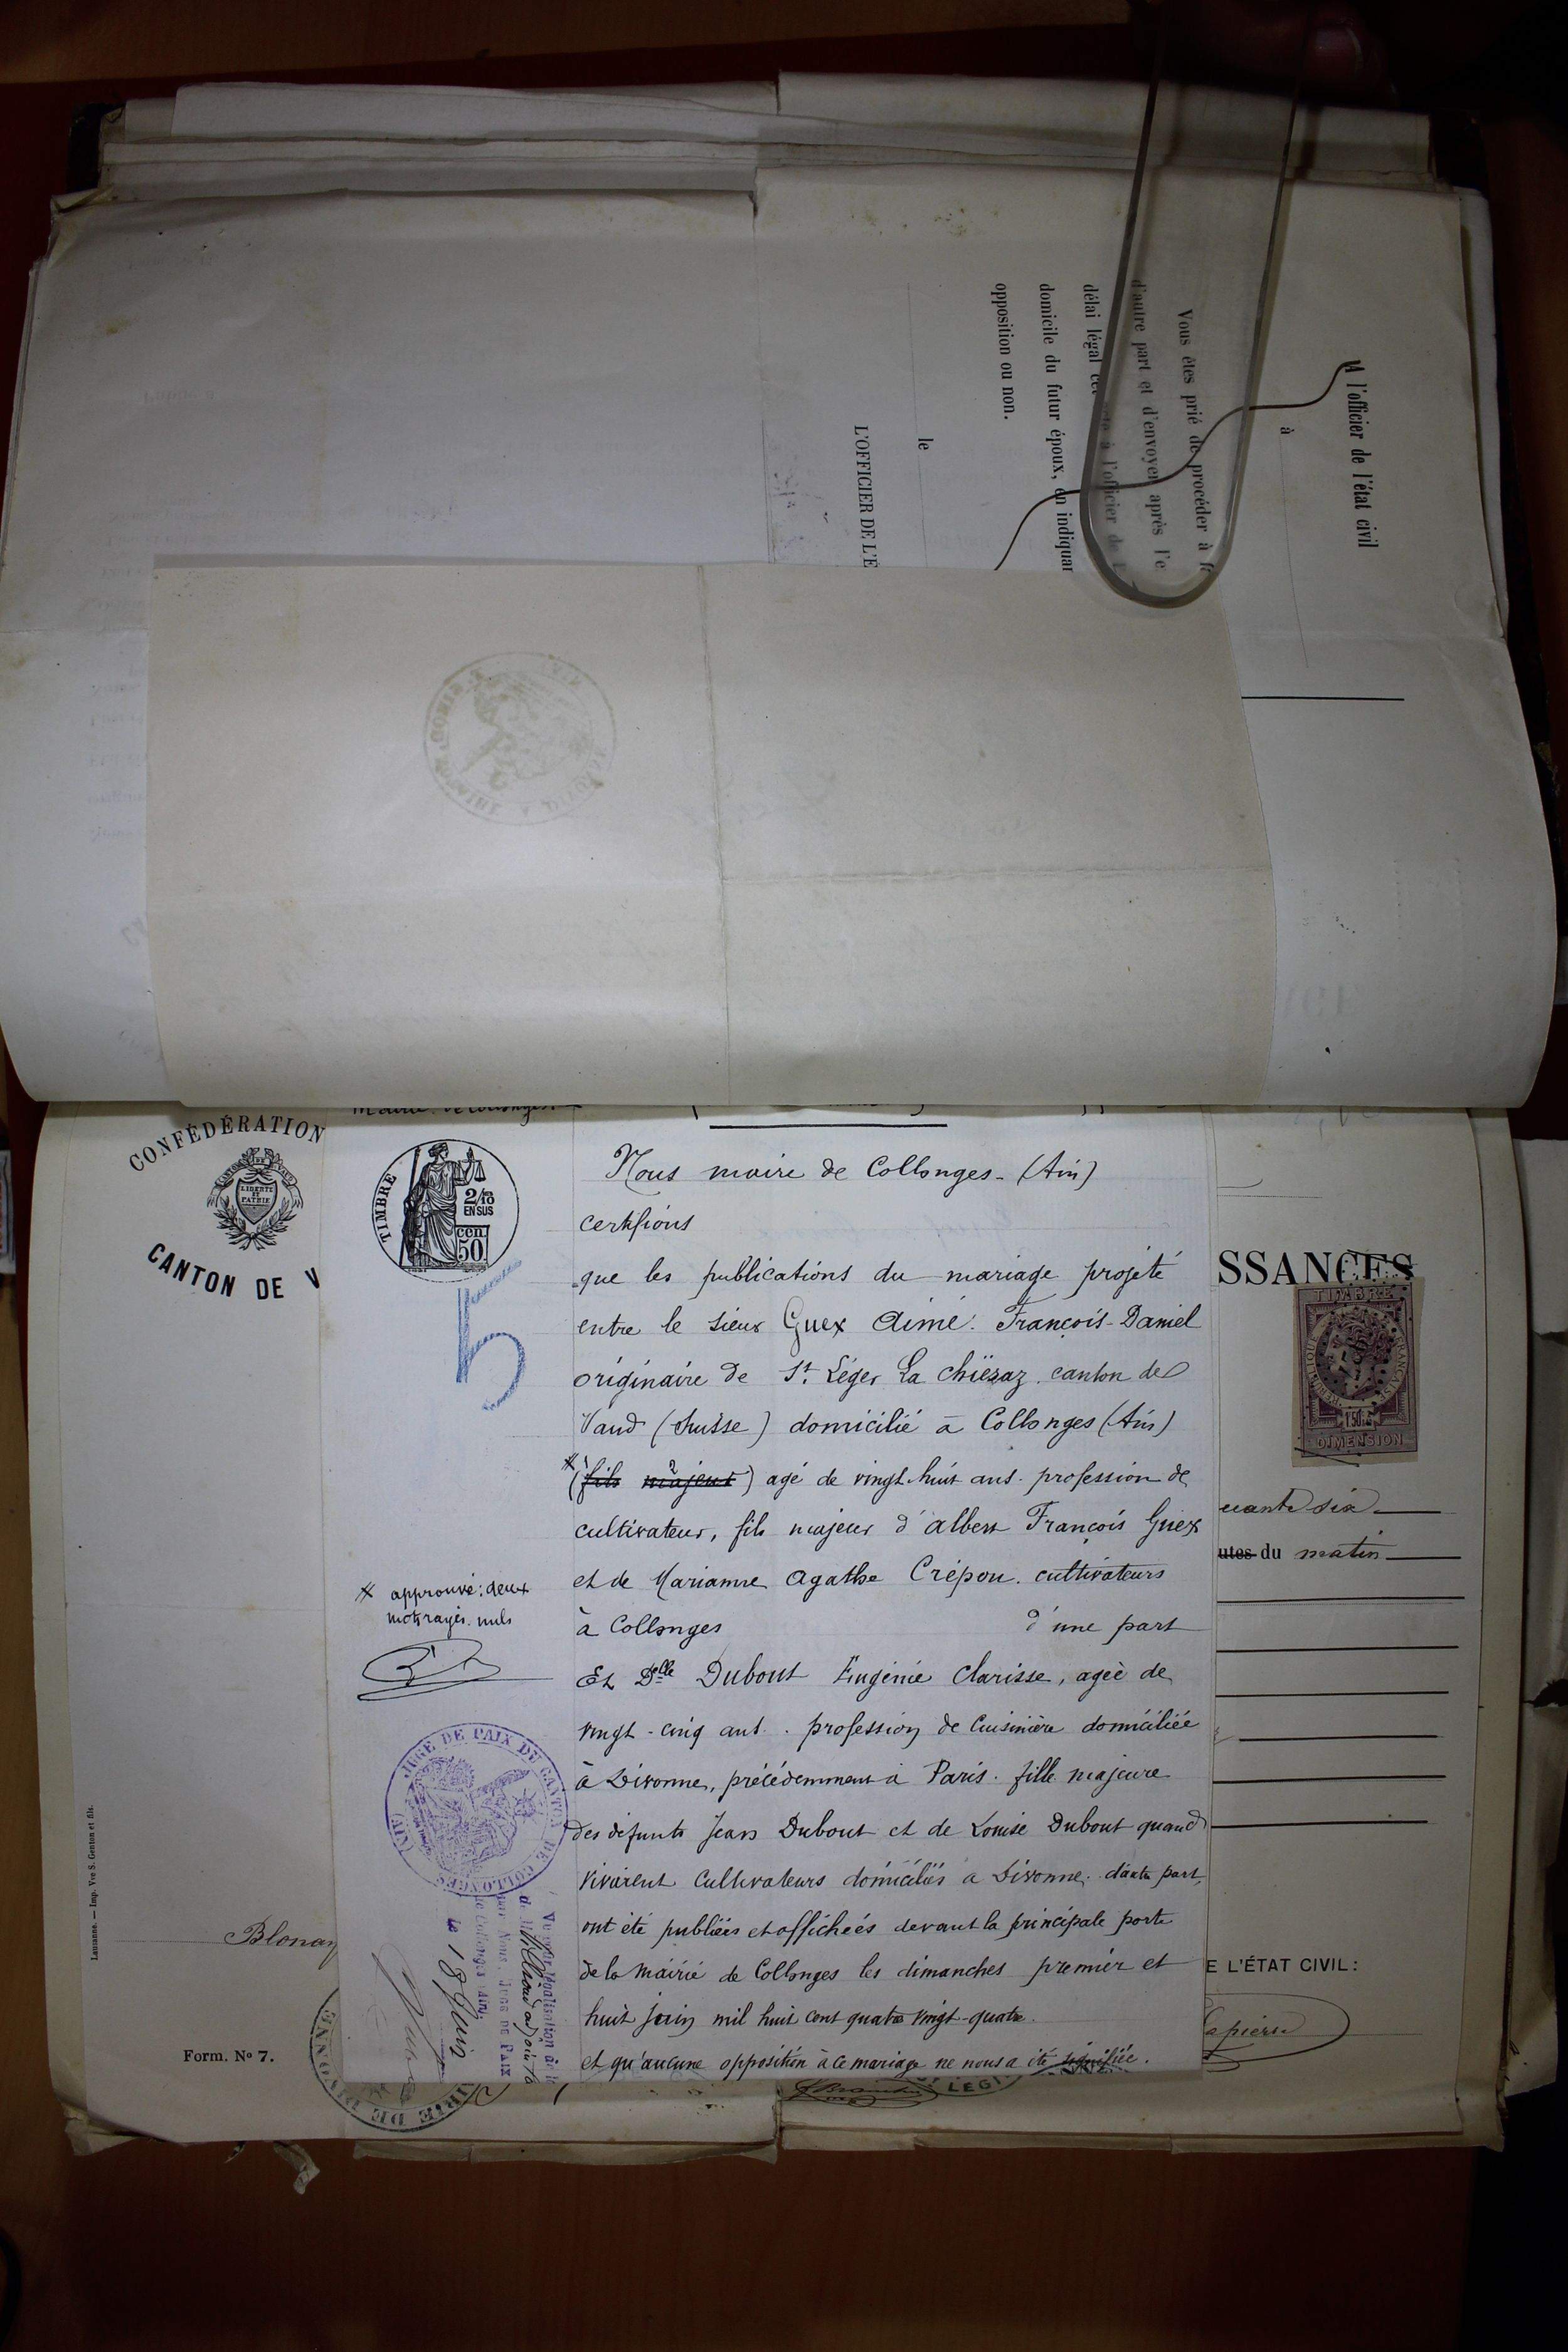 A l'officier de l'état civil
à
Vous êtes prié de procéder à
d'autre part et d'envoyer après l'e
délai légal
domicile du futur époux, en indiquan
opposition ou non.
le
L'OFFICIER DE L'É
CONFÉDÉRATION
LIBERTÉ
ET
PATRIE
CANTON DE V
TIMBRE
2/10
EN SUS
50 cen
5
Nous maire de Collonges - (Ain)
certifions
que les publications du mariage projeté
entre le sieur Guex Aimé. François-Daniel
originaire de St. Léger La chiësaz. canton de
Vaud (Suisse) domicilié à Collonges (Ain)
* (fils majeur) agé de vingt-huit ans. profession de
cultivateur, fils majeur d'albert François Guex
et de Marianne Agathe Crépon. cultivateurs
à Collonges d'une part
* approuvé: deux
mots rayés. nuls
Et Delle Dubout Eugénie Clarisse, agée de
vingt-cinq ans. profession de Cuisinière domiciliée
à Divonne, précédemment à Paris. fille majeure
des défunts Jean Dubout et de Louise Dubout quand
vivaient Cultivateurs domiciliés à Divonne. d'autre part,
ont été publiées et affichées devant la principale porte
de la Mairie de Collonges les dimanches premier et
huit juin mil huit cent quatre vingt-quatre.
et qu'aucune opposition à ce mariage ne nous a été signifiée.
JUGE DE PAIX DU CANTON DE COLLONGES (AIN)
par Nous, JUGE DE PAIX
de Collonges (Ain)
le 18 Juin
SSANCES
TIMBRE
RÉPUBLIQUE FRANÇAISE
DIMENSION
uante six
utes du matin
E L'ÉTAT CIVIL:
apierre
LEGI
Blonay
Form. No 7.
Lausanne. — Imp. Vve S. Genton et fils.
IRIE DE DIVONNE